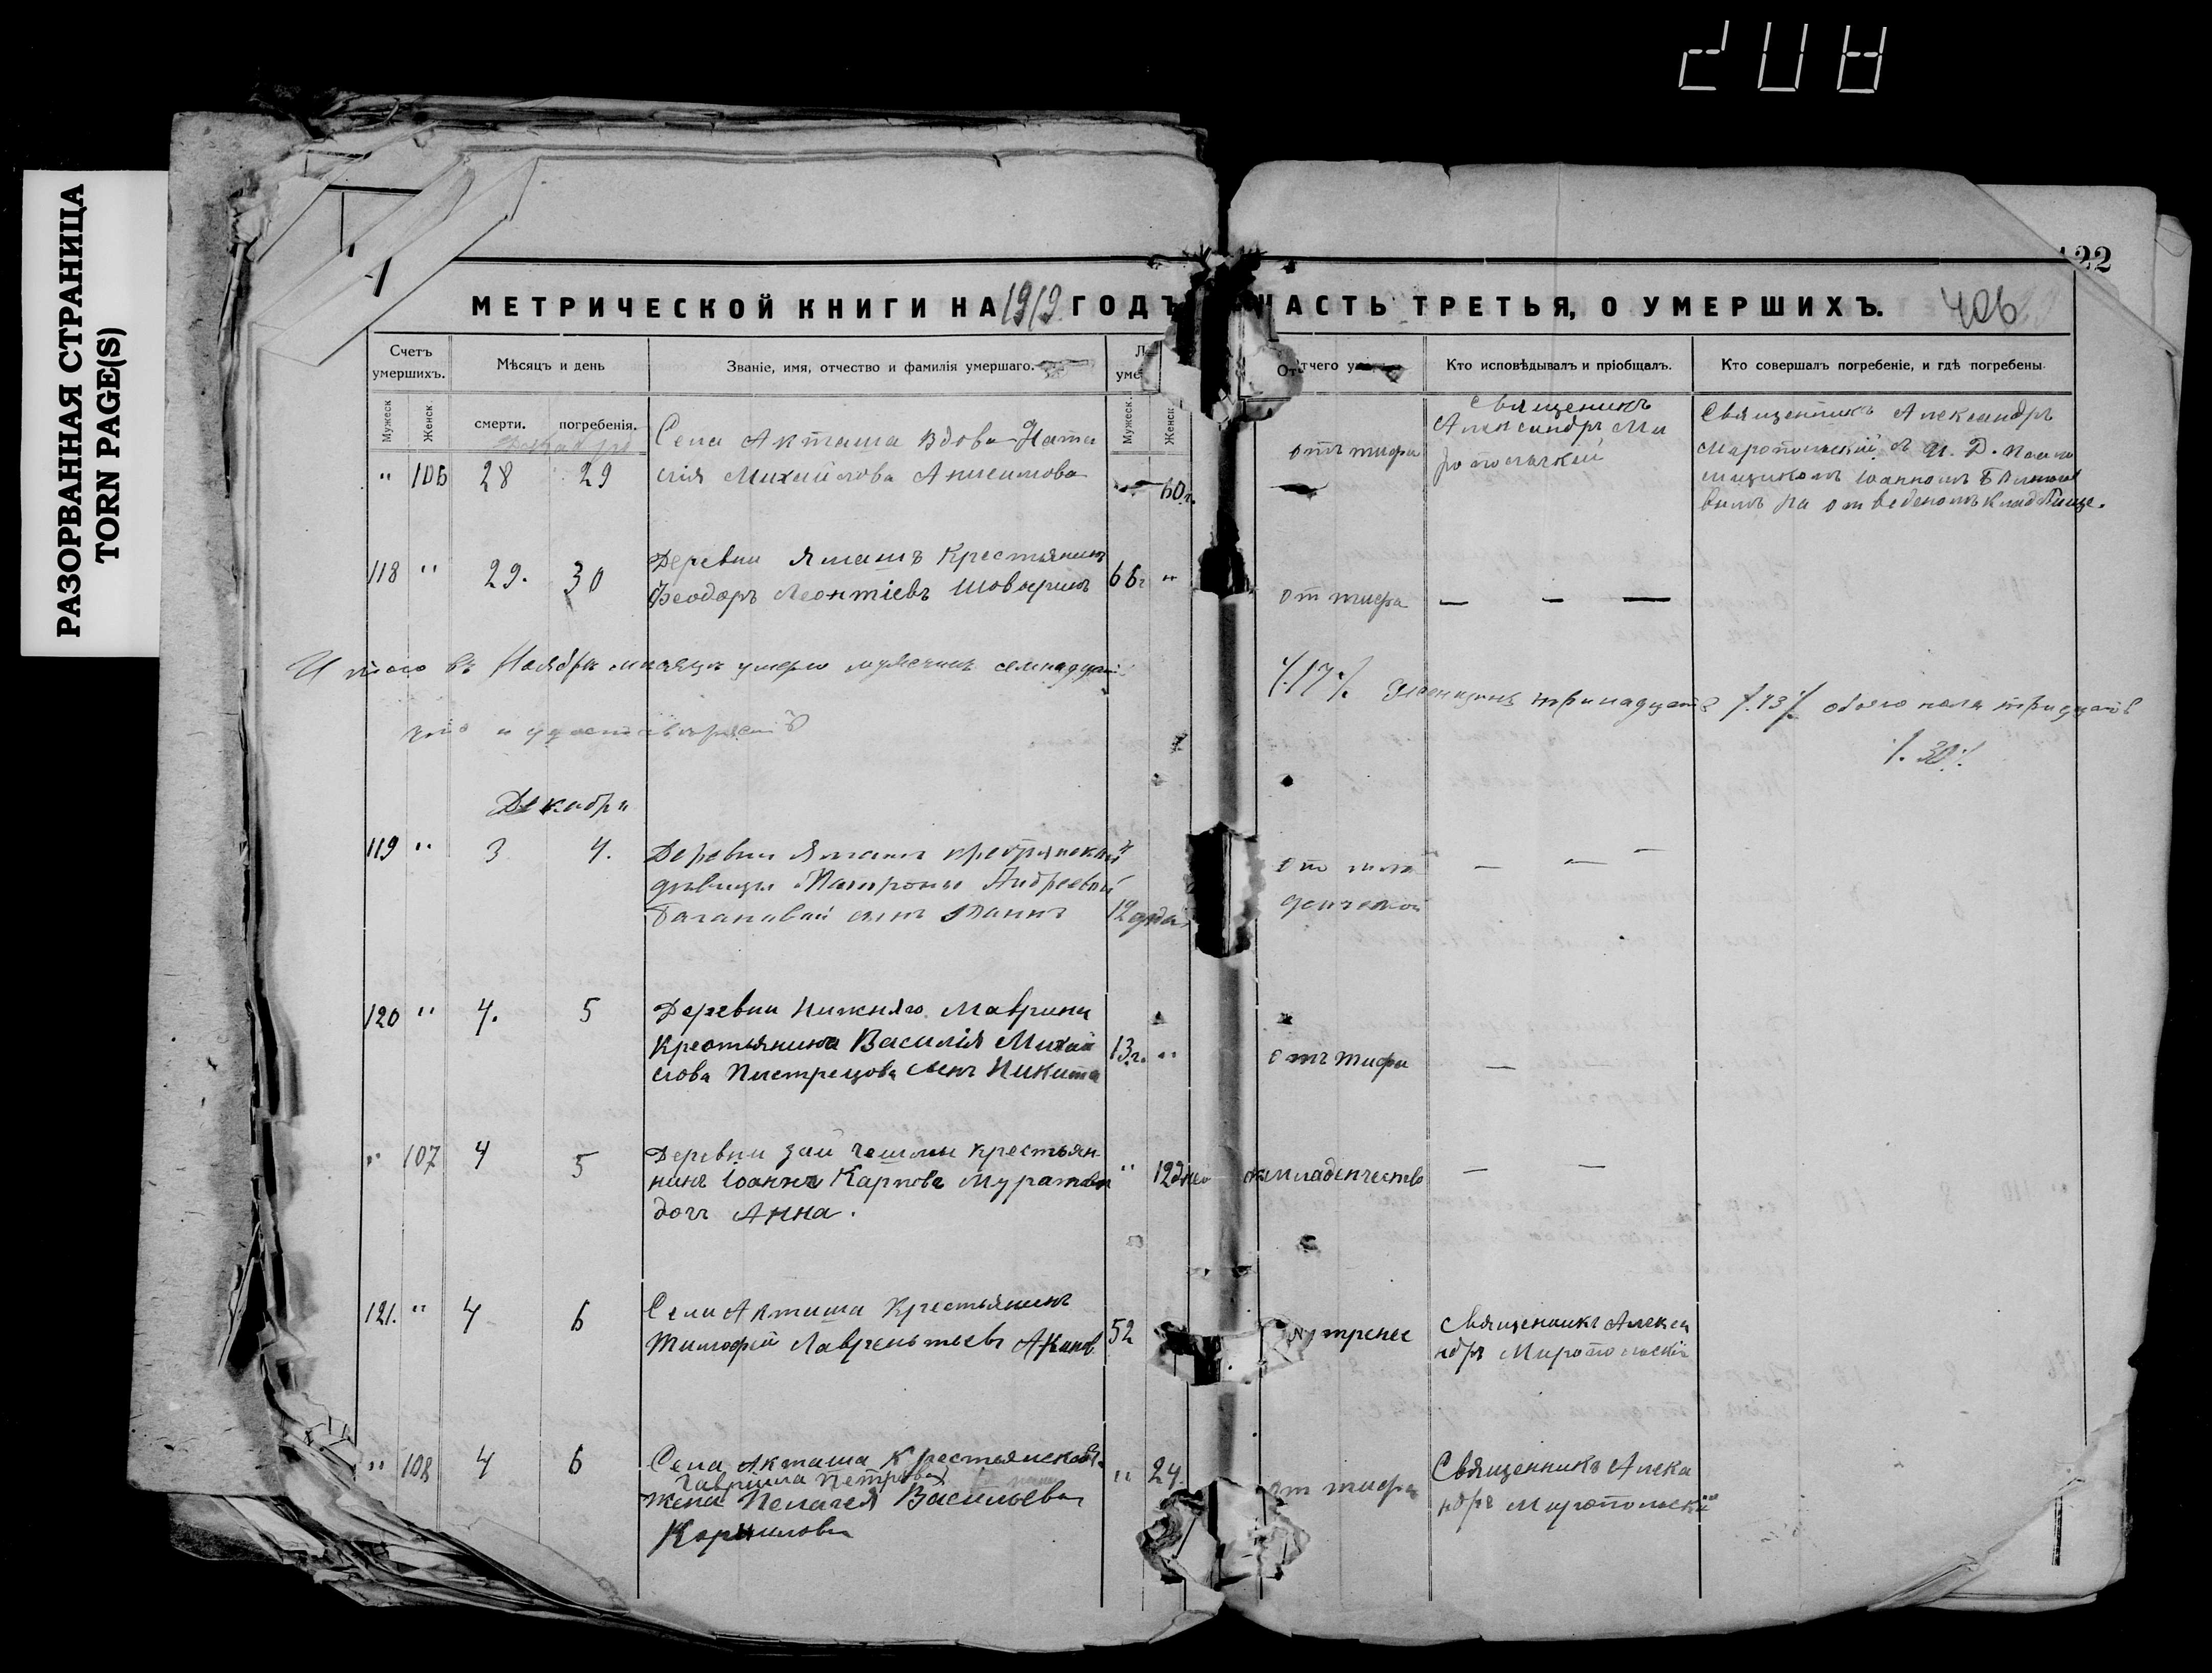 208
РАЗОРВАННАЯ СТРАНИЦА
TORN PAGE(S)
22
МЕТРИЧЕСКОЙ КНИГИ НА 1919 ГОДЪ
ЧАСТЬ ТРЕТЬЯ, О УМЕРШИХЪ. 406
Счетъ умершихъ.
Мѣсяцъ и день
Званіе, имя, отчество и фамилія умершаго.
Отчего
Кто исповѣдывалъ и пріобщалъ.
Кто совершалъ погребеніе, и гдѣ погребены.
Мужеск
Женск
смерти.
погребенія.
Мужеск.
Женск
" 106 28 29
Села Акташа вдова Ната
лія Михайлова Анисимова
60 г.
отъ тифа
Священикъ
Александръ Ми
ропольскій
Священникъ Александръ
Миропольскій съ И. Д. Псало
мщикомъ Іоанномъ
на отведеномъ кладбище.
118 " 29. 30
Деревни Ямашъ Крестьянинъ
Феодоръ Леонтіевъ
66 г "
от тифа — — —
Итого въ Ноябрѣ мѣсяцѣ умерло мужчинъ семнадцать
/.17./ женщинъ тринадцать /.13./ обоего пола тридцать
/.30./
что и удостовѣряетъ
Декабрь
119 " 3 4.
Деревни Ямашъ крестьянской
дѣвицы Матроны Андреевой
сынъ
12 дней
от мла
денческой
— — —
120 " 4. 5
Деревни Нижняго Маврина
крестьянина Василія Михай
лова Пистрецова сынъ Никита
13 г. "
отъ тифа —
" 107 4 5
Деревни Зай Чешмы крестьян
нинъ Іоаннъ Карповъ Муратовъ
дочь Анна.
" 12 дней
младенчества — —
121. " 4 6
Села Акташа Крестьянинъ
Тимофей Лаврентьевъ
52
Священникъ Алекса
ндръ Миропольскій
" 108 4 6
Села Акташа Крестьянская
Гавріила Петрова
жена Пелагея Васильева
Корнилова
" 24.
от тифа
Священникъ Алекса
ндръ Миропольскій